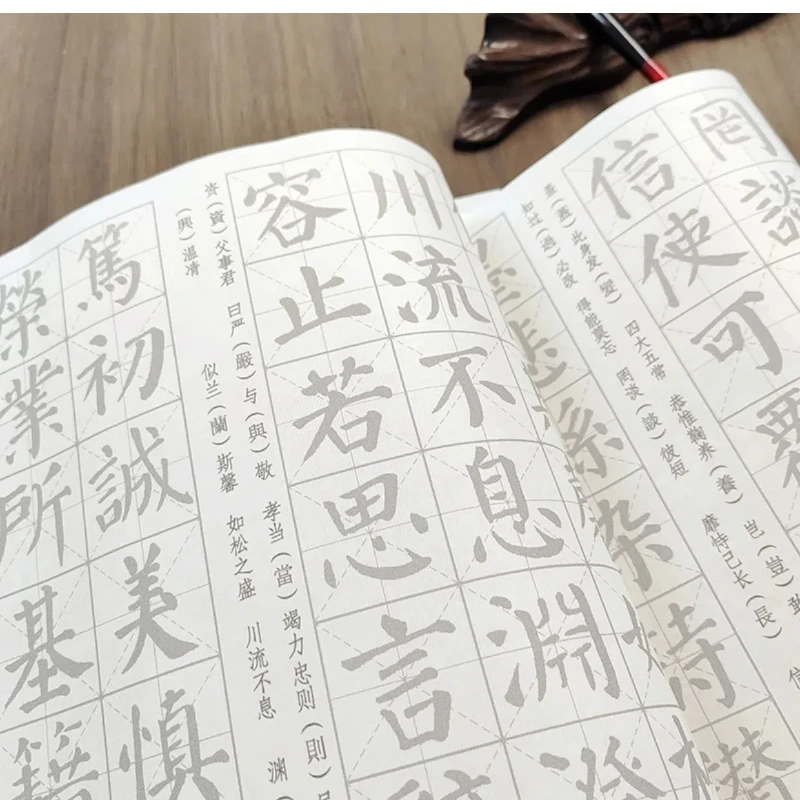 罔談
信使可覆
盖（蓋）此身发（髮） 四大五常 恭惟鞠养（養） 岂（豈）敢
知过（過）必改 得能莫忘 罔谈（談）彼短 靡恃己长（長） 信
悲絲染詩
川流不息淵澄
容止若思言
资（資）父事君 曰严（嚴）与（與）敬 孝当（當）竭力 忠则（則）
（興）温凊 似兰（蘭）斯馨 如松之盛 川流不息 渊（
篤初誠美慎
榮業所基籍